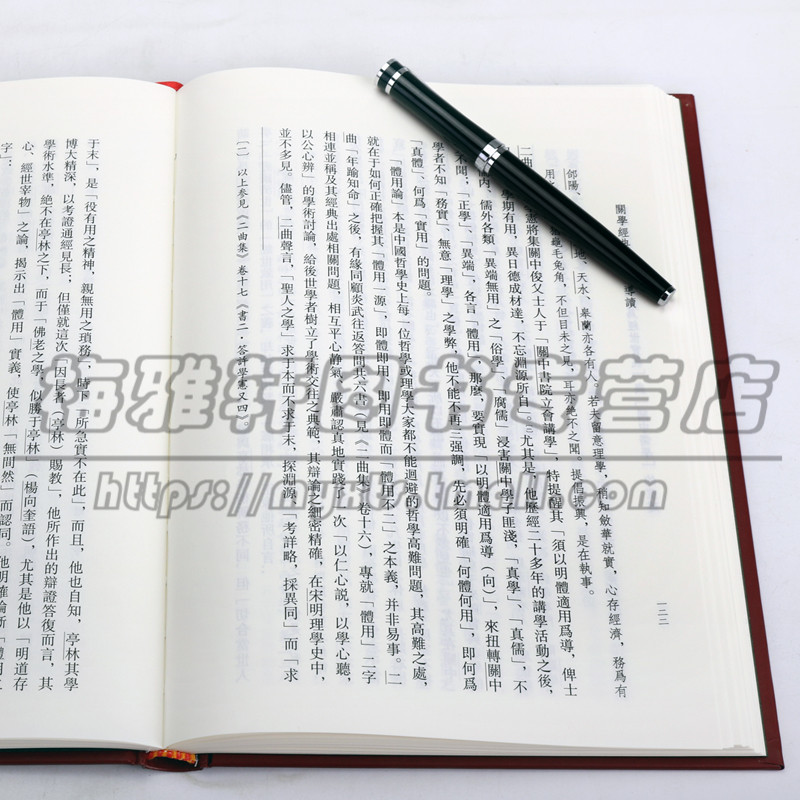 關學經典 導讀
地、天水、臯蘭亦各有人。若夫留意理學，稍知斂華就實，心存經濟，務爲有
龜毛兔角，不但目未之見，耳亦絕不之聞。提倡振興，是在執事。
憲將集關中俊乂士人于「關中書院立會講學」，特提醒其「須以明體適用爲導，俾士
學期有用，異日德成材達，不忘淵源所自。」尤其是，他歷經二十多年的講學活動之後，
內、儒外各類「異端無用」之「俗學」、「腐儒」浸害關中學子匪淺，「真學」、「真儒」，不
不聞；「正學」、「異端」，各言「體用」，那麼，要實現「以明體適用爲導（向）」，來扭轉關中
學者不知「務實」、無意「理學」之學弊，他不能不再三强調，先必須明確「何體何用」，即何爲
「真體」、何爲「實用」的問題。
「體用論」本是中國哲學史上每一位哲學或理學大家都不能迴避的哲學高難問題，其高難之處，
就在于如何正確把握其「體用一源」，即體即用、即用即體而「體用不二」之本義，並非易事。二
曲「年踰知命」之後，有緣同顧炎武往返答問共六書（見《二曲集》卷十六），專就「體用」二字
相連並稱及其經典出處相關問題，相互平心静氣、嚴肅認真地實踐了一次「以仁心説，以學心聽，
以公心辨」的學術討論，給後世學者樹立了學術交往之典範，其辯論之細密精確，在宋明理學史中，
並不多見。儘管，二曲聲言，「聖人之學」求于本而不求于末，探淵源，「考詳略，採異同」而「求
（一）以上參見《二曲集》卷十七《書二·答許學憲又四》。
于末」，是「役有用之精神，親無用之瑣務」，時下「所急實不在此」，而且，他也自知，亭林其學
博大精深，以考證通經見長，但僅就這次「因長者（亭林）賜教」，他所作出的辯證答復而言，其
學術水準，絶不在亭林之下，而于「佛老之學，似勝于亭林」（楊向奎語），尤其是他以「明道存
心、經世宰物」之論，揭示出「體用」實義，使亭林「無間然」而認同。他明確論斷「體用二
字」：
梅雅軒圖书专营店
https://myxts.tmall.com